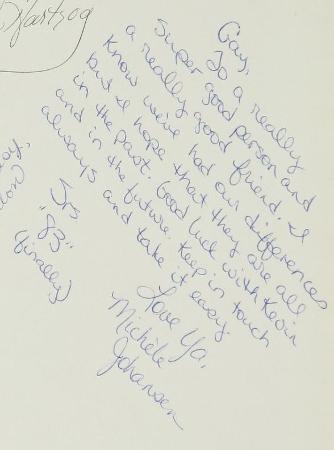 Gay,
To a really
super good person and
a really good friend. I
know we've had our differences
but I hope that they are all
in the past. Good luck with Kevin
and in the future. Keep in touch
always and take it easy.
Love Ya,
Michele
Johansen
Srs
"83"
(finally)